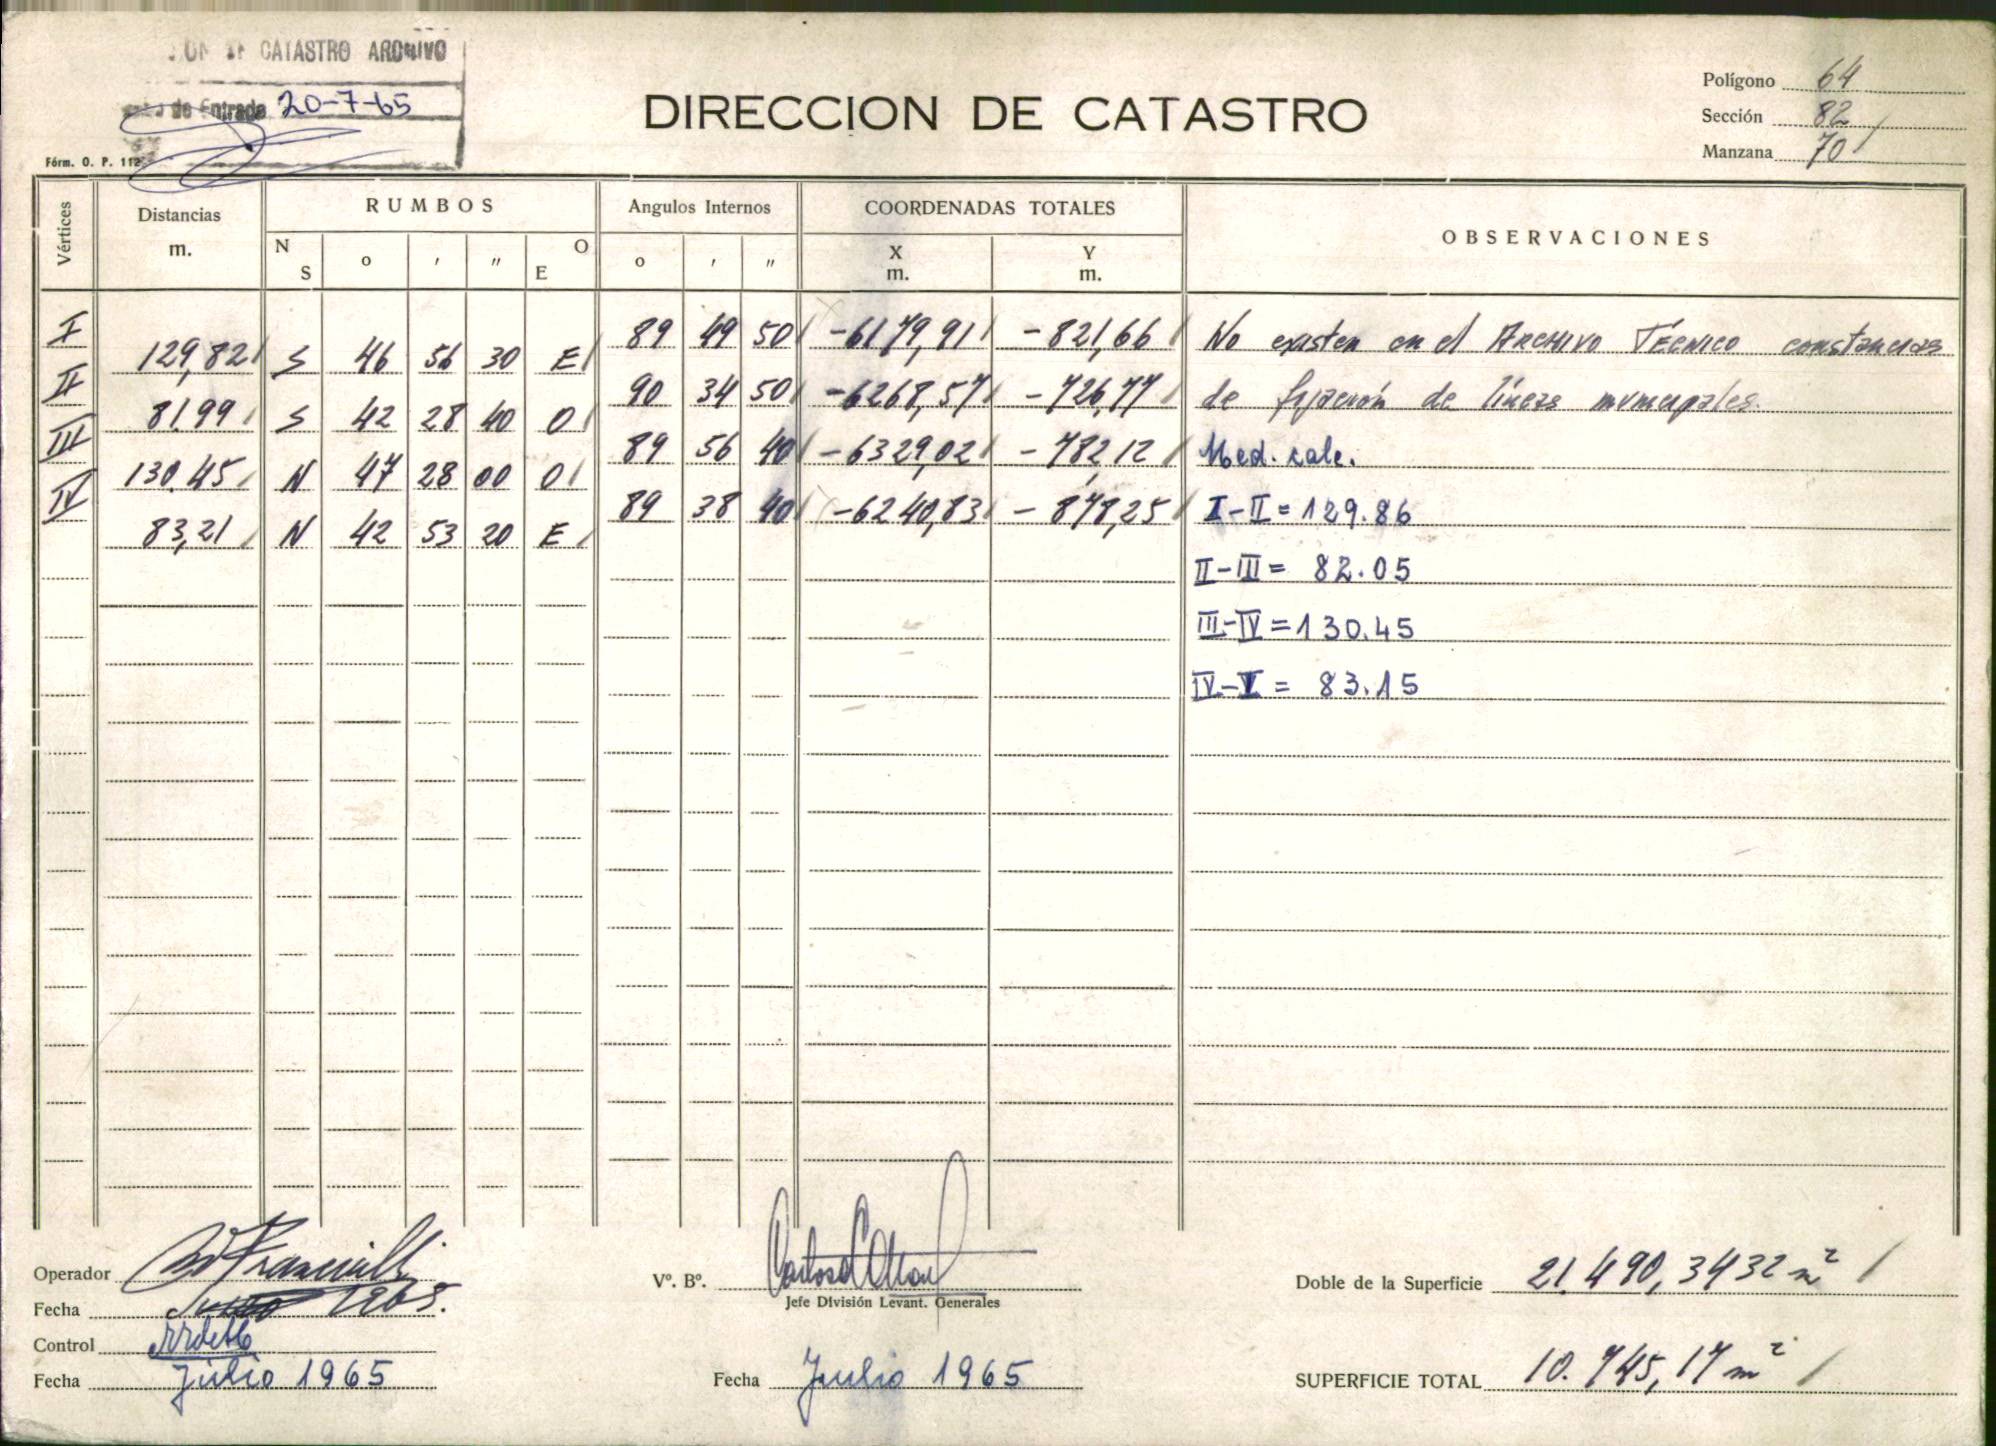 CATASTRO ARCHIVO
de Entrada 20-7-65
Fórm. O. P. 112
DIRECCION DE CATASTRO
Polígono 64
Sección 82
Manzana 70
Vértices Distancias m. RUMBOS N S o ' " O E Angulos Internos o ' " COORDENADAS TOTALES X m. Y m. OBSERVACIONES
I 89 49 50 -6179,91 -821,66 No existen en el ARCHIVO TÉCNICO constancias
129,82 S 46 56 30 E
II 90 34 50 -6268,57 -726,77 de fijación de líneas municipales.
81.99 S 42 28 40 O
III 89 56 40 -6329,02 -782,12 Med. calc.
130.45 N 47 28 00 O
IV 89 38 40 -6240,83 -878,25 I-II = 129.86
83,21 N 42 53 20 E
II-III = 82.05
III-IV = 130.45
IV-I = 83.15
Operador
Fecha 1965.
Control
Fecha julio 1965
Vº. Bº.
Jefe División Levant. Generales
Fecha Julio 1965
Doble de la Superficie 21.490,3432 m²
SUPERFICIE TOTAL 10.745,17 m²